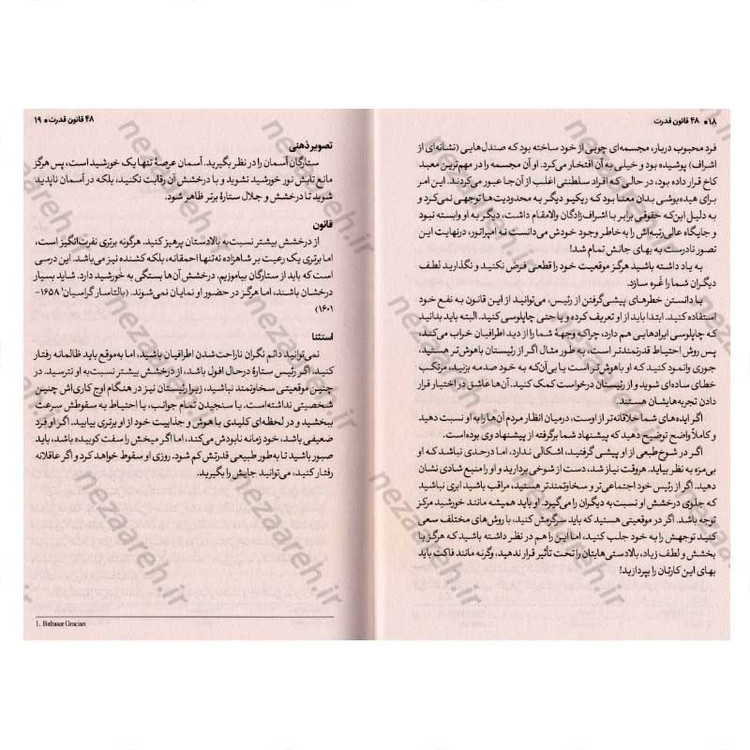 ۱۸ • ۴۸ قانون قدرت
فرد محبوب دربار، مجسمه‌ای چوبی از خود ساخته بود که صندل‌هایی (نشانه‌ای از
اشراف) پوشیده بود و خیلی به آن افتخار می‌کرد. او آن مجسمه را در مهم‌ترین معبد
کاخ قرار داده بود، در حالی که افراد سلطنتی اغلب از آن‌جا عبور می‌کردند. این امر
برای هیده‌یوشی بدان معنا بود که ریکیو دیگر به محدودیت‌ها توجهی نمی‌کرد و
به دلیل این‌که حقوقی برابر با اشراف‌زادگان والامقام داشت، دیگر به او وابسته نبود
و جایگاه عالی‌رتبه‌اش را به خاطر وجود خودش می‌دانست نه امپراتور، درنهایت این
تصور نادرست به بهای جانش تمام شد!
به یاد داشته باشید هرگز موقعیت خود را قطعی فرض نکنید و نگذارید لطف
دیگران شما را غَره سازد.
با دانستن خطرهای پیشی‌گرفتن از رئیس، می‌توانید از این قانون به نفع خود
استفاده کنید. ابتدا باید از او تعریف کرده و یا حتی چاپلوسی کنید. البته باید بدانید
که چاپلوسی ایرادهایی هم دارد، چراکه وجههٔ شما را از دید اطرافیان خراب می‌کند،
پس روش احتیاط قدرتمندتر است، به طور مثال اگر از رئیستان باهوش‌تر هستید،
جوری وانمود کنید که او باهوش‌تر است یا بی‌آن‌که به خود صدمه بزنید، مرتکب
خطای ساده‌ای شوید و از رئیستان درخواست کمک کنید. آن‌ها عاشق در اختیار قرار
دادن تجربه‌هایشان هستند.
اگر ایده‌های شما خلاقانه‌تر از اوست، درمیان انظار مردم آن‌ها را به او نسبت دهید
و کاملاً واضح توضیح دهید که پیشنهاد شما برگرفته از پیشنهاد وی بوده‌است.
اگر در شوخ‌طبعی از او پیشی گرفتید، اشکالی ندارد، اما درحدی نباشد که او
بی‌مزه به نظر بیاید. هروقت نیاز شد، دست از شوخی بردارید و او را منبع شادی نشان
دهید. اگر از رئیس خود اجتماعی‌تر و سخاوتمندتر هستید، مراقب باشید ابری نباشید
که جلوی درخشش او نسبت به دیگران را می‌گیرد. او باید همیشه مانند خورشید مرکز
توجه باشد. اگر در موقعیتی هستید که باید سرگرمش کنید، با روش‌های مختلف سعی
کنید توجهش را به خود جلب کنید، اما این را هم در نظر داشته باشید که هرگز با
بخشش و لطف زیاد، بالادستی‌هایتان را تحت تأثیر قرار ندهید، وگرنه مانند فاکت باید
بهای این کارتان را بپردازید!
۴۸ قانون قدرت • ۱۹
تصویر ذهنی
ستارگان آسمان را در نظر بگیرید. آسمان عرصهٔ تنها یک خورشید است، پس هرگز
مانع تابش نور خورشید نشوید و با درخشش آن رقابت نکنید، بلکه در آسمان ناپدید
شوید تا درخشش و جلال ستارهٔ برتر ظاهر شود.
قانون
از درخشش بیشتر نسبت به بالادستان پرهیز کنید. هرگونه برتری نفرت‌انگیز است،
اما برتری یک رعیت بر شاهزاده نه‌تنها احمقانه، بلکه کشنده نیز می‌باشد. این درسی
است که باید از ستارگان بیاموزیم. درخشش آن‌ها بستگی به خورشید دارد. شاید بسیار
درخشان باشند، اما هرگز در حضور او نمایان نمی‌شوند. (بالتاسار گراسیان¹ ۱۶۵۸-
۱۶۰۱)
استثنا
نمی‌توانید دائم نگران ناراحت‌شدن اطرافیان باشید، اما به‌موقع باید ظالمانه رفتار
کنید. اگر رئیس ستارهٔ درحال افول باشد، از درخشش بیشتر نسبت به او نترسید. در
چنین موقعیتی سخاوتمند نباشید، زیرا رئیستان نیز در هنگام اوج کاری‌اش چنین
شخصیتی نداشته‌است. با سنجیدن تمام جوانب، با احتیاط به سقوطش سرعت
ببخشید و در لحظه‌ای کلیدی با هوش و جذابیت خود از او برتری بیابید. اگر او فرد
ضعیفی باشد، خود زمانه نابودش می‌کند، اما اگر میخش را سفت کوبیده باشد، باید
صبور باشید تا به‌طور طبیعی قدرتش کم شود. روزی او سقوط خواهد کرد و اگر عاقلانه
رفتار کنید، می‌توانید جایش را بگیرید.
1. Baltasar Gracian
nezaareh.ir
nezaareh.ir
nezaareh.ir
nezaareh.ir